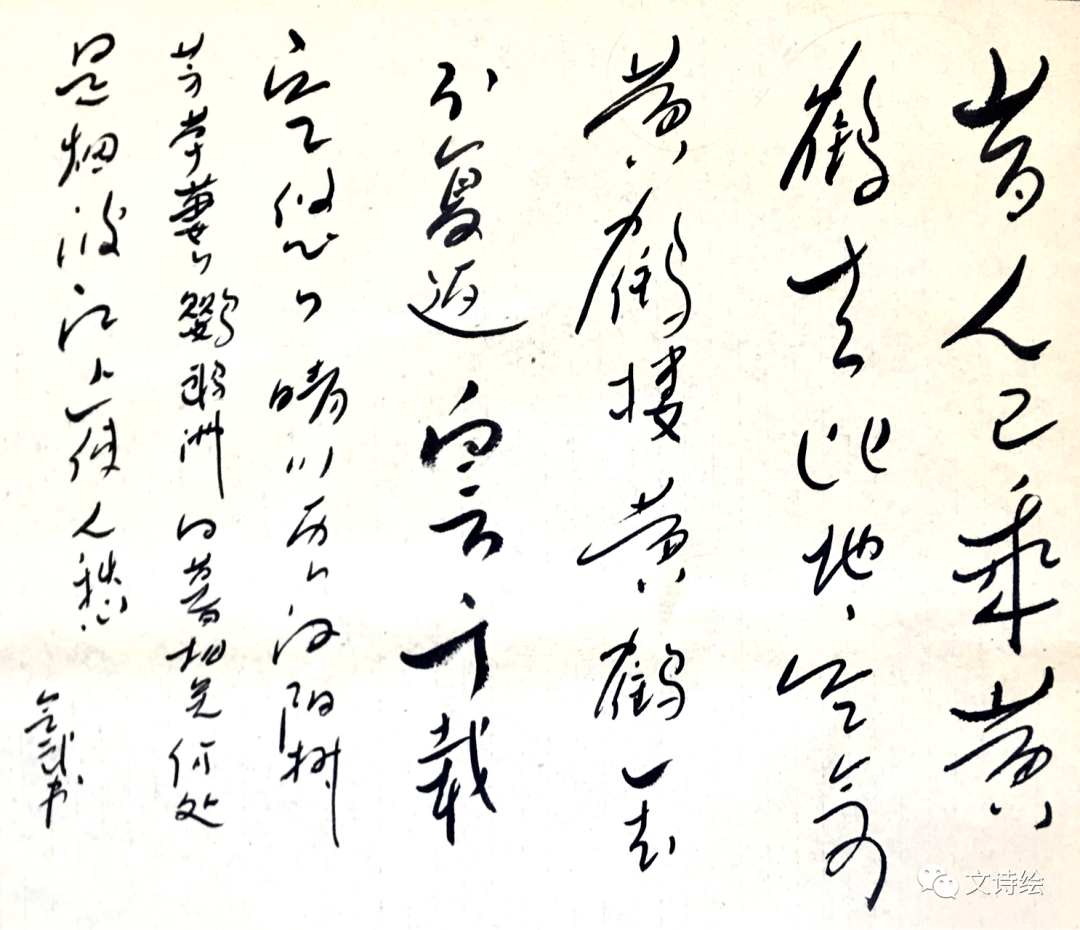 昔人已乘黄
鹤去此地空余
黄鹤楼黄鹤一去
不复返白云千载
空悠々晴川历々汉阳树
芳草萋々鹦鹉洲日暮乡关何处
是烟波江上使人愁
书
文诗绘